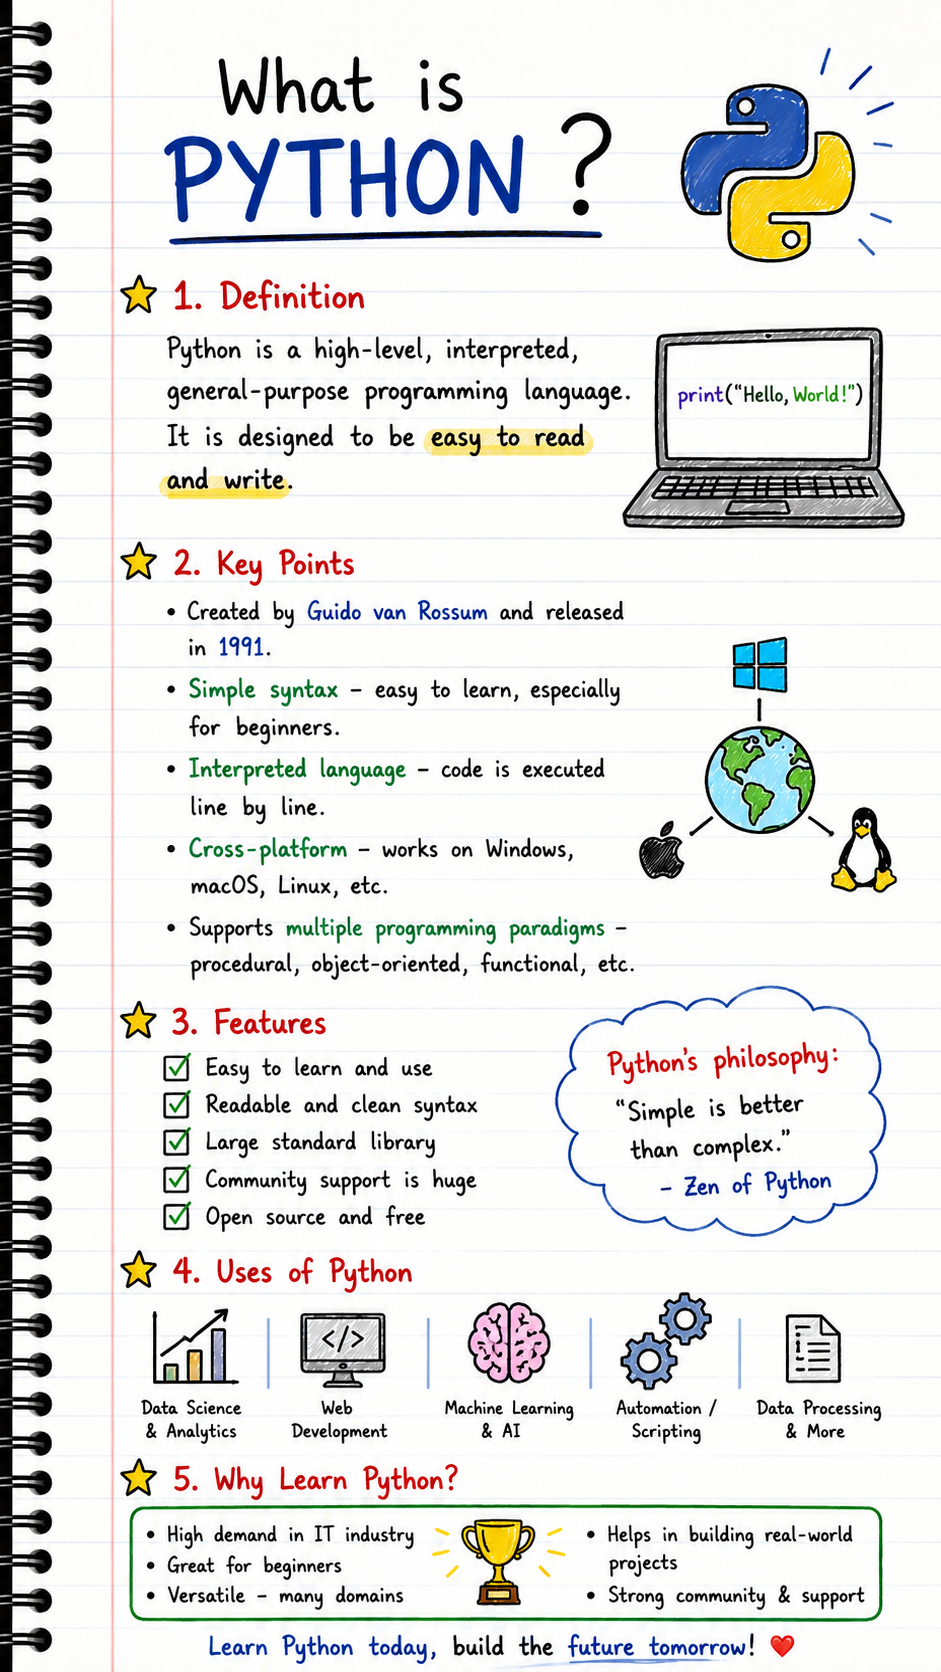 What is
PYTHON ?
1. Definition
Python is a high-level, interpreted,
general-purpose programming language.
It is designed to be easy to read
and write.
print(“Hello, World!”)
2. Key Points
• Created by Guido van Rossum and released
in 1991.
• Simple syntax – easy to learn, especially
for beginners.
• Interpreted language – code is executed
line by line.
• Cross-platform – works on Windows,
macOS, Linux, etc.
• Supports multiple programming paradigms –
procedural, object-oriented, functional, etc.
3. Features
Easy to learn and use
Readable and clean syntax
Large standard library
Community support is huge
Open source and free
Python's philosophy:
“Simple is better
than complex.”
– Zen of Python
4. Uses of Python
</>
Data Science
& Analytics
Web
Development
Machine Learning
& AI
Automation /
Scripting
Data Processing
& More
5. Why Learn Python?
• High demand in IT industry
• Great for beginners
• Versatile – many domains
• Helps in building real-world
projects
• Strong community & support
Learn Python today, build the future tomorrow! ❤️